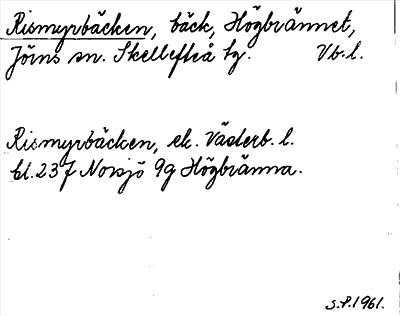 Rismyrbäcken, bäck, Högbrännet,
Jörns sn. Skellefteå tg. Vb.l.
Rismyrbäcken, ek. Västerb. l.
bl. 237 Norsjö 9g Högbränna.
S.P. 1961.